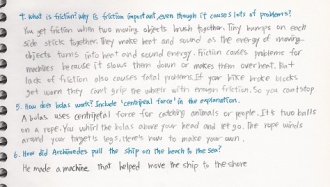 4. What is friction? Why is friction important, even though it causes lots of problems?
You get friction with two moving objects brush together. Tiny bumps on each
side stick together. They make heat and sound as the energy of moving
objects turns into heat and sound energy. Friction causes problems for
machines because it slows them down or makes them over heat. But
lack of friction also causes fatal problems. If your bike brake blocks
get worn they cant grip the wheels with enough friction. So you cant stop
5. How do bolas work? Include 'centripetal force' in the explanation.
A bolas uses centripetal force for catching animals or people. It's two balls
on a rope. You whirl the bolas above your head and let go. The rope winds
around your target's legs. Here's how to make your own.
6. How did Archimedes pull the ship on the beach to the sea?
He made a machine that helped move the ship to the shore